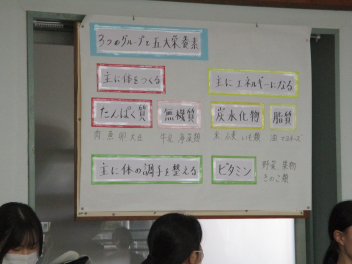 3つのグループと五大栄養素
主に体をつくる
主にエネルギーになる
たんぱく質
無機質
炭水化物
脂質
肉 魚 卵 大豆
牛乳 海藻類
米 小麦 いも類
油 マヨネーズ
主に体の調子を整える
ビタミン
野菜 果物
きのこ類